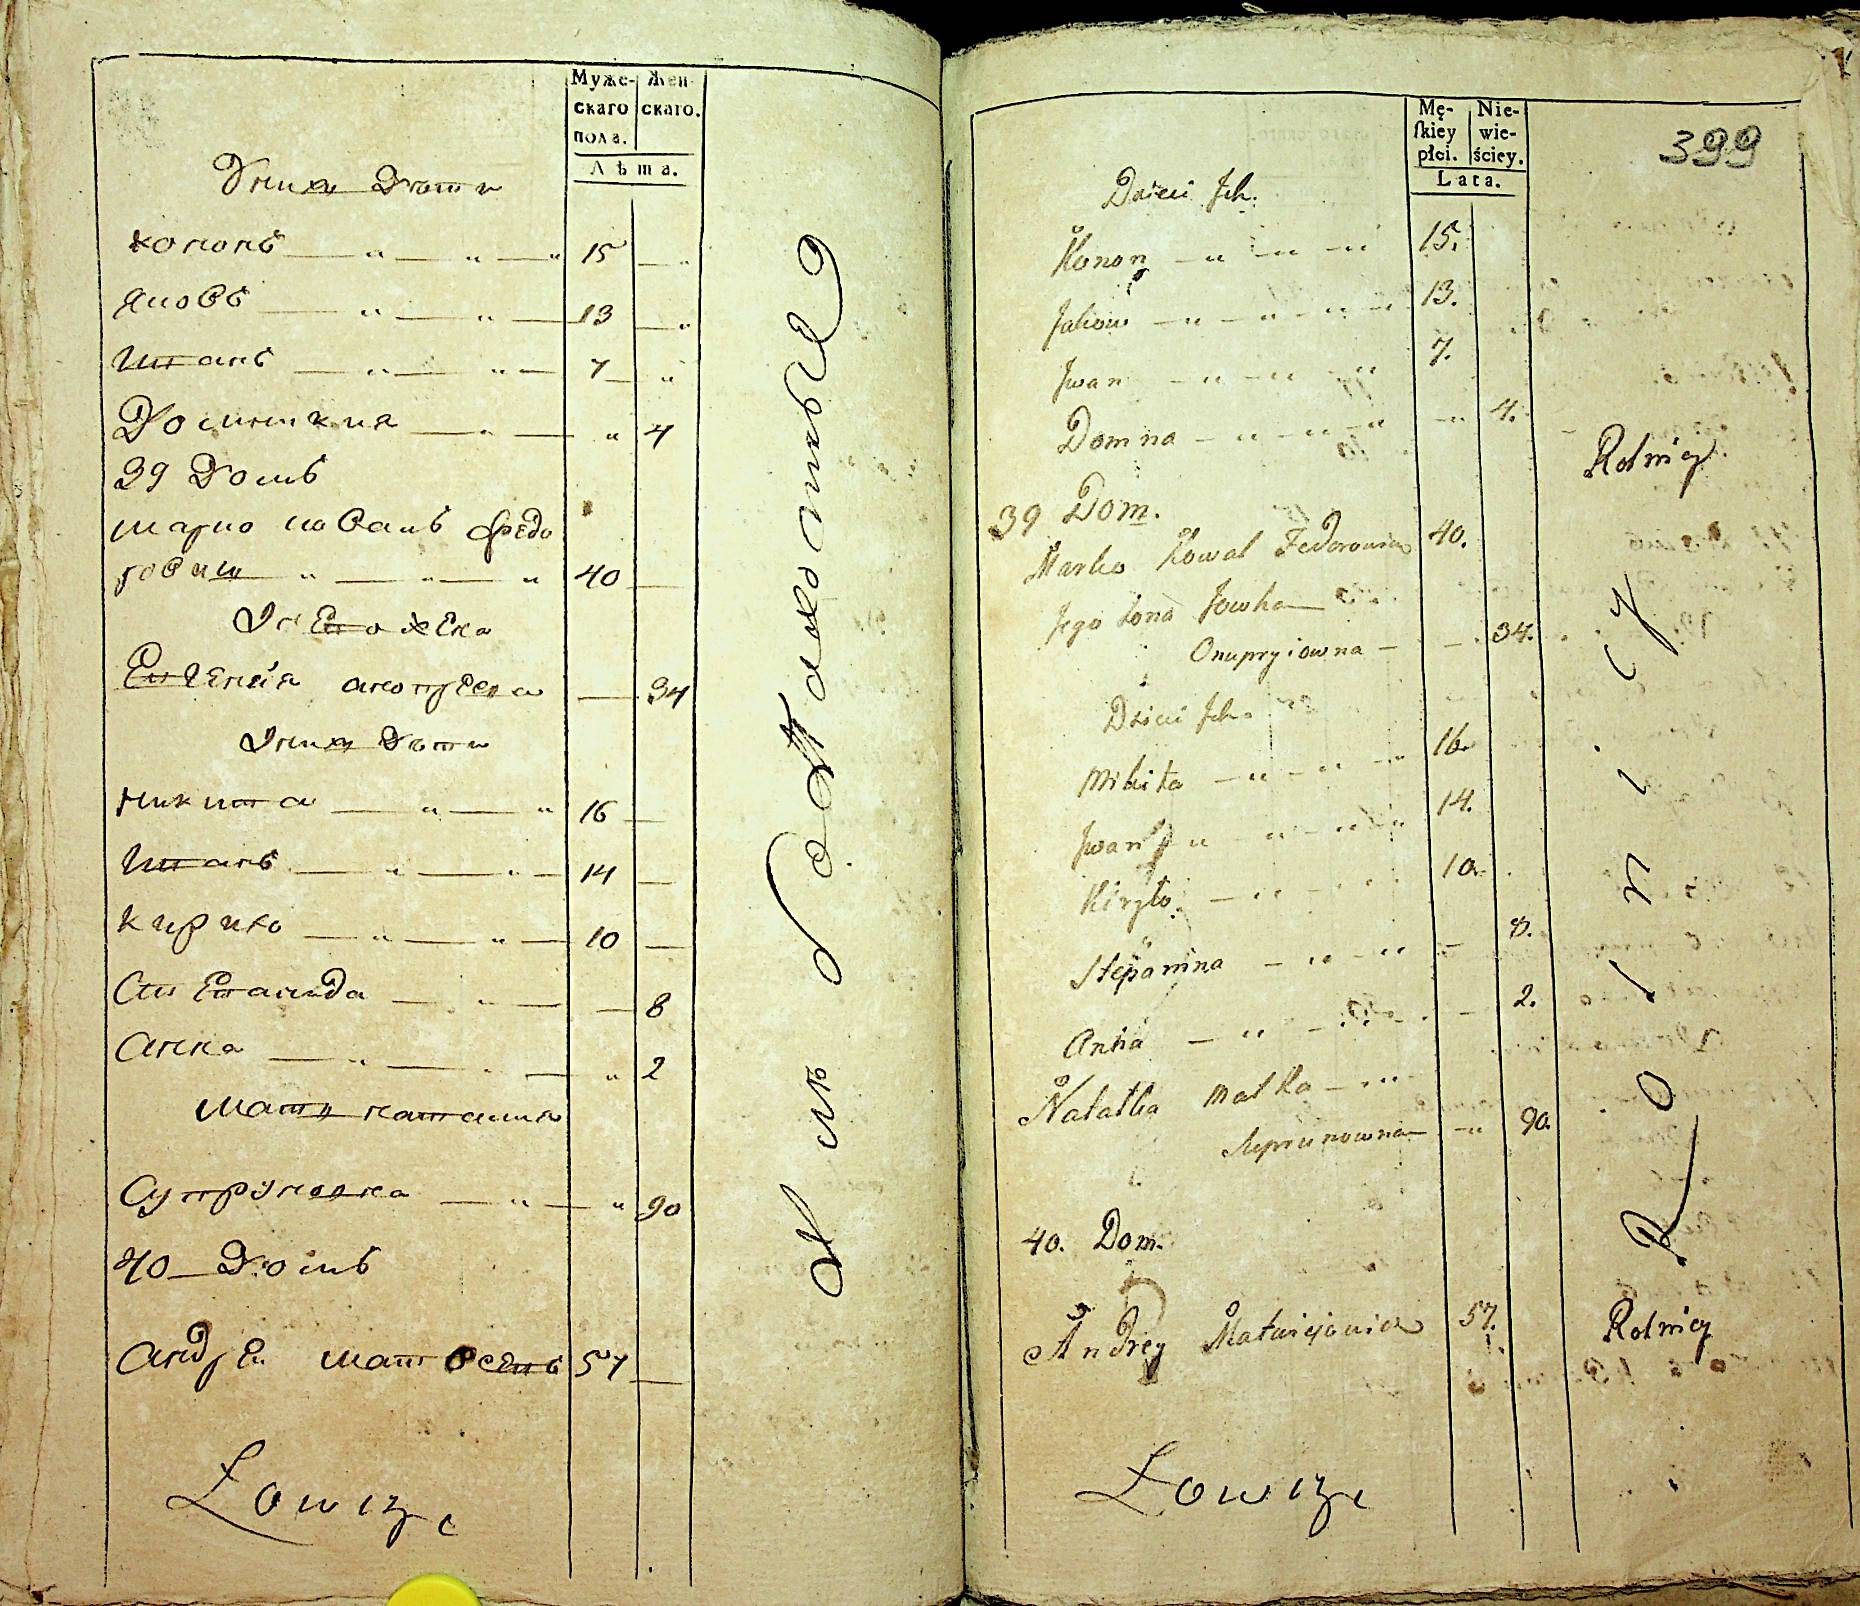 Муже-
скаго
пола.
Жен-
скаго.
Лѣта.
Ихъ Дѣти
Кононъ 15
Яковъ 13
Иванъ 7
Домникия 4
39 Домъ
Марко Коваль Федо
ровичъ 40
Его Жена
Евгения Анопрева 34
Ихъ Дѣти
Никита 16
Иванъ 14
Кирило 10
Степанида 8
Анна 2
Мать Наталия
Супруновна 90
40 Домъ
Андрей 57
Łowcze
Mę-
ſkiey
płci.
Nie-
wie-
ściey.
Lata.
399
Dzieci Ich.
Konon 15.
Jakow 13.
Iwan 7.
Domna 4.
Rolnicy
39 Dom.
Marko Kowal Fedorowicz 40.
Jego żona Jowha
Onupryiowna 34.
Dzieci Ich.
Mikita 16.
Iwan 14.
Kiryło 10.
Stepanina 8.
Anna 2.
Natalka Matka
Suprunowna 90.
40. Dom.
Andrey Matwiejowicz 57.
Rolnicy
Rolnicy
Łowcze